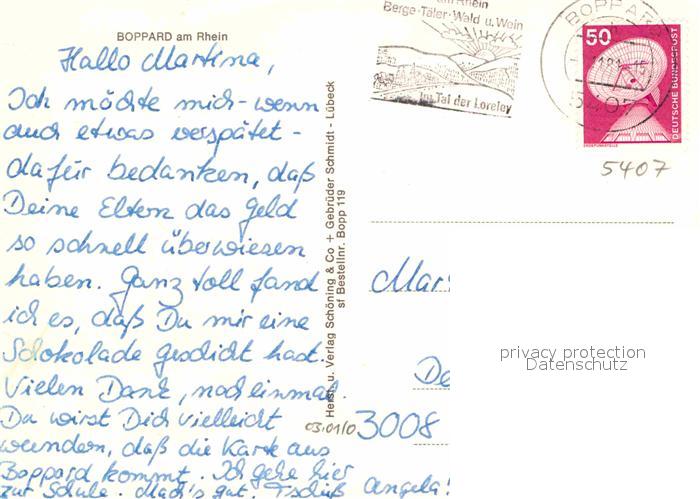 BOPPARD am Rhein
Hallo Martina,
Ich möchte mich - wenn
auch etwas verspätet -
dafür bedanken, daß
Deine Eltern das Geld
so schnell überwiesen
haben. Ganz toll fand
ich es, daß Du mir eine
Schokolade geschickt hast.
Vielen Dank, noch einmal.
Du wirst Dich vielleicht
wundern, daß die Karte aus
Boppard kommt. Ich gehe hier
zur Schule. Mach's gut. Tschüß Angela!
Herst. u. Verlag Schöning & Co + Gebrüder Schmidt - Lübeck
sf Bestellnr. Bopp 119
am Rhein
Berge-Täler-Wald u. Wein
Im Tal der Loreley
BOPPARD
5407
50
DEUTSCHE BUNDESPOST
ERDEFUNKSTELLE
5407
Mar
De
03.01/0
3008
privacy protection
Datenschutz